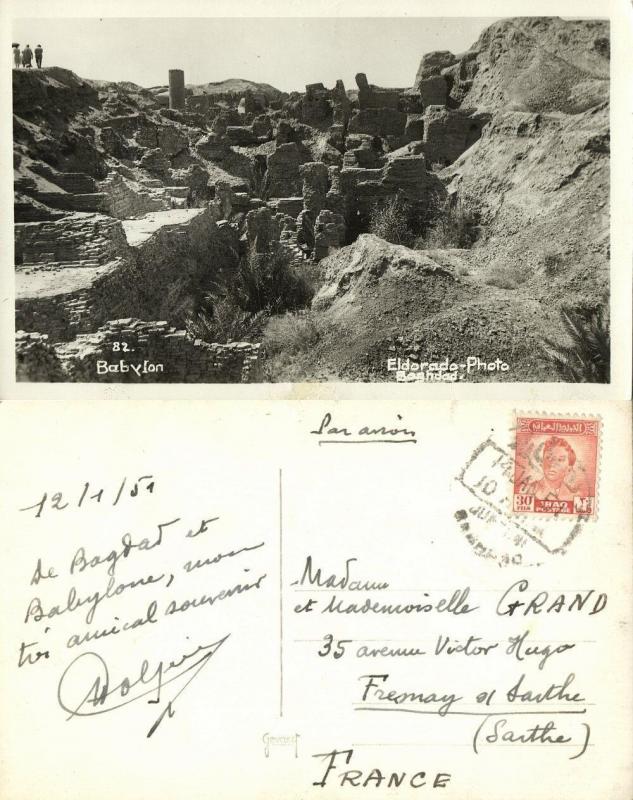 82.
Babylon
Eldorado-Photo
Baghdad.
Par avion
12/1/51
De Bagdad et
Babylone, mon
très amical souvenir
Madame
et Mademoiselle GRAND
35 avenue Victor Hugo
Fresnay s/ Sarthe
(Sarthe)
FRANCE
Gevaert
30
FILS
IRAQ
POSTAGE